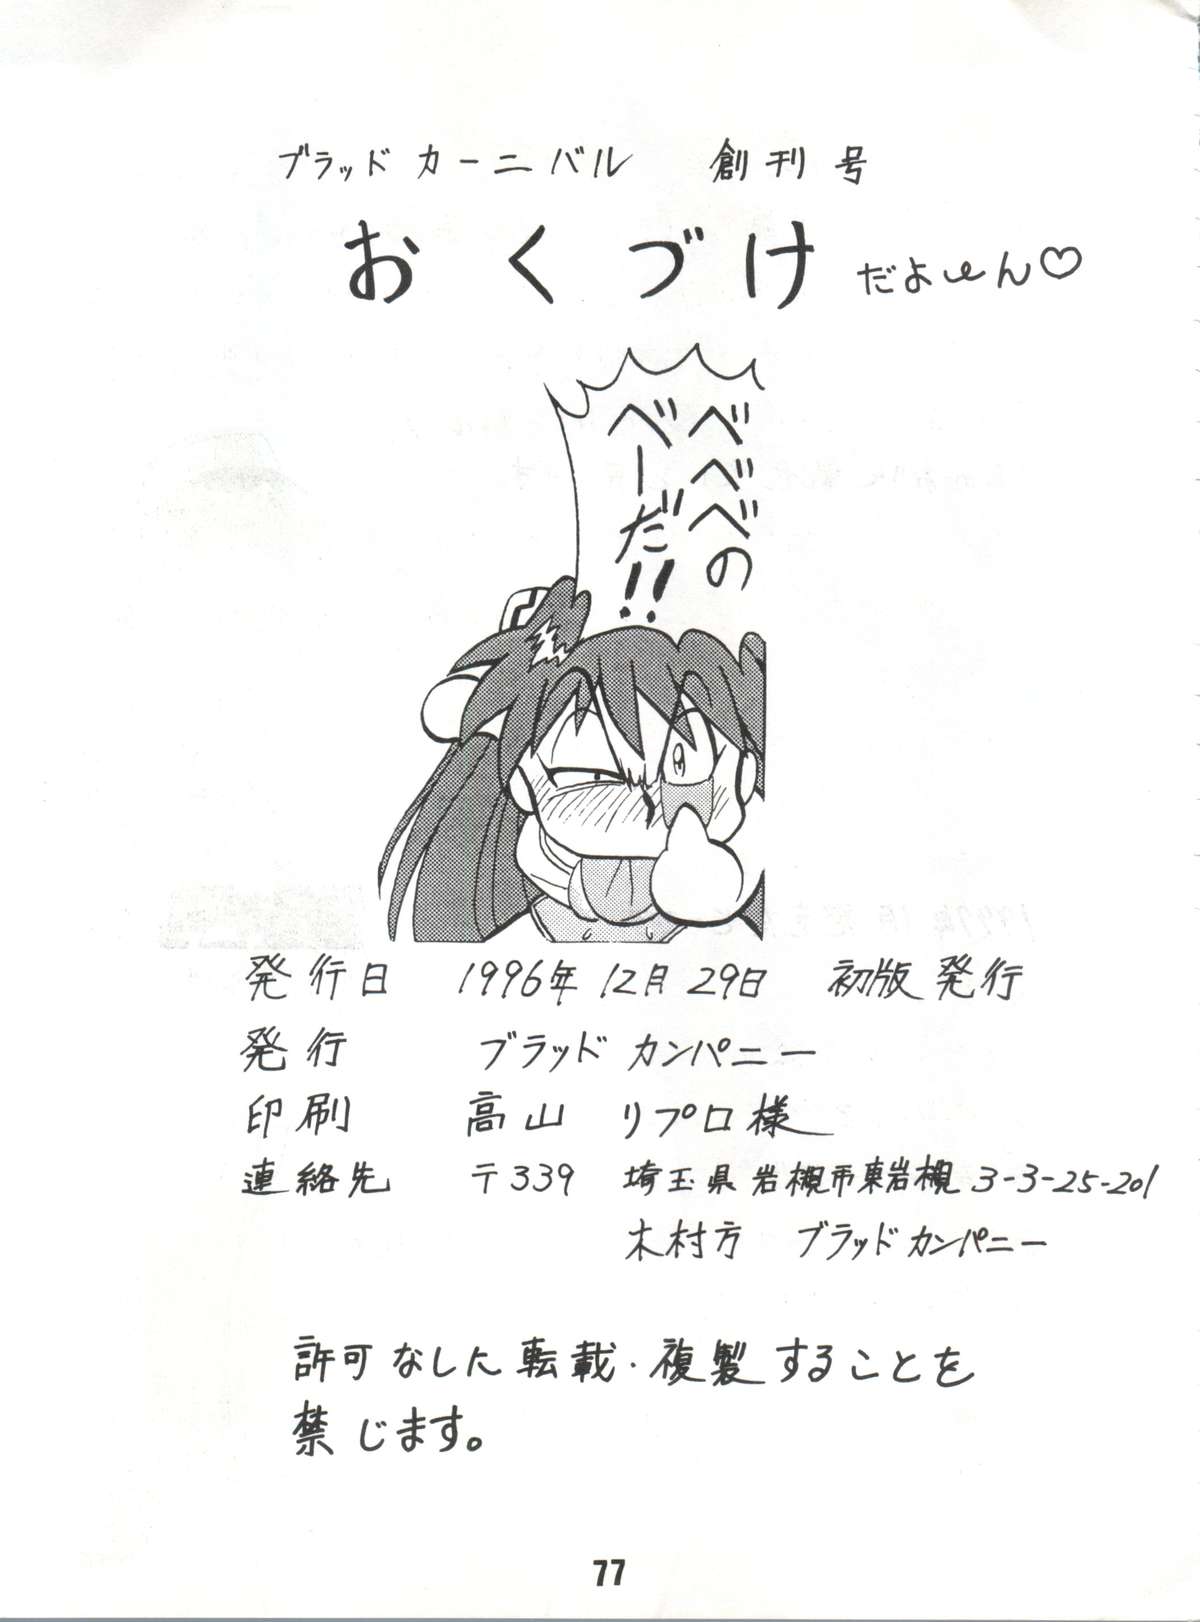 ブラッドカーニバル 創刊号
おくづけ だよーん♡
べべべの
べーだ!!
発行日 1996年12月29日 初版発行
発行 ブラッドカンパニー
印刷 高山 リプロ様
連絡先 〒339 埼玉県岩槻市東岩槻 3-3-25-201
木村方 ブラッドカンパニー
許可なした転載・複製することを
禁じます。
77